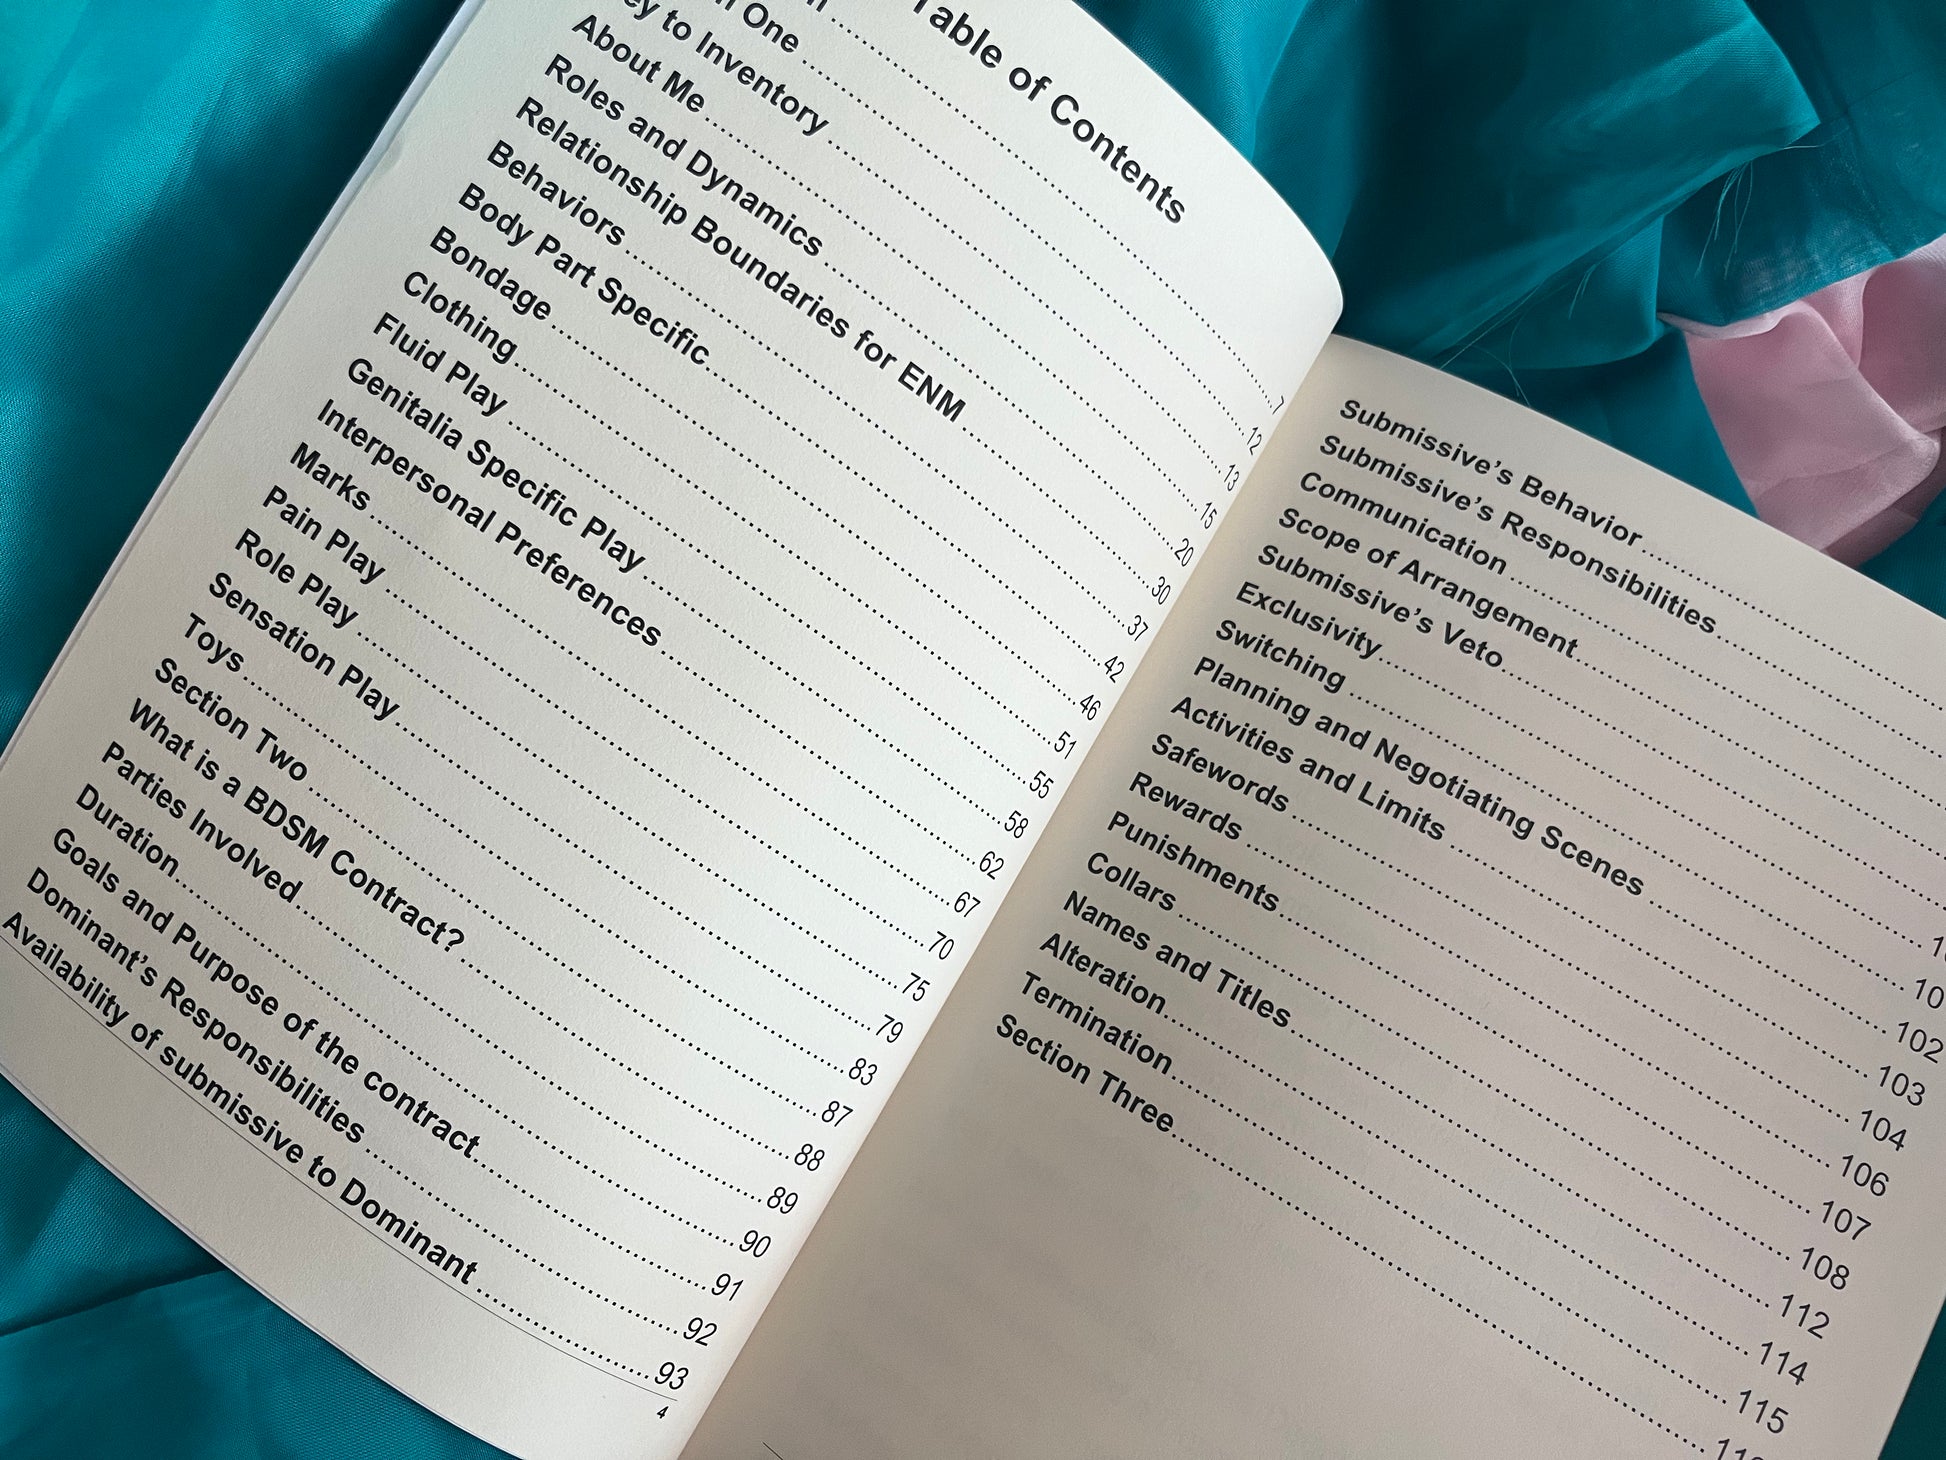 Table of Contents
..........7
One..........12
to Inventory..........13
About Me..........15
Roles and Dynamics..........20
Relationship Boundaries for ENM..........30
Behaviors..........37
Body Part Specific..........42
Bondage..........46
Clothing..........51
Fluid Play..........55
Genitalia Specific Play..........58
Interpersonal Preferences..........62
Marks..........67
Pain Play..........70
Role Play..........75
Sensation Play..........79
Toys..........83
Section Two..........87
What is a BDSM Contract?..........88
Parties Involved..........89
Duration..........90
Goals and Purpose of the contract..........91
Dominant’s Responsibilities..........92
Availability of submissive to Dominant..........93
4
Submissive’s Behavior..........
Submissive’s Responsibilities..........
Communication..........
Scope of Arrangement..........
Submissive’s Veto..........
Exclusivity..........
Switching..........
Planning and Negotiating Scenes..........102
Activities and Limits..........103
Safewords..........104
Rewards..........106
Punishments..........107
Collars..........108
Names and Titles..........112
Alteration..........114
Termination..........115
Section Three..........